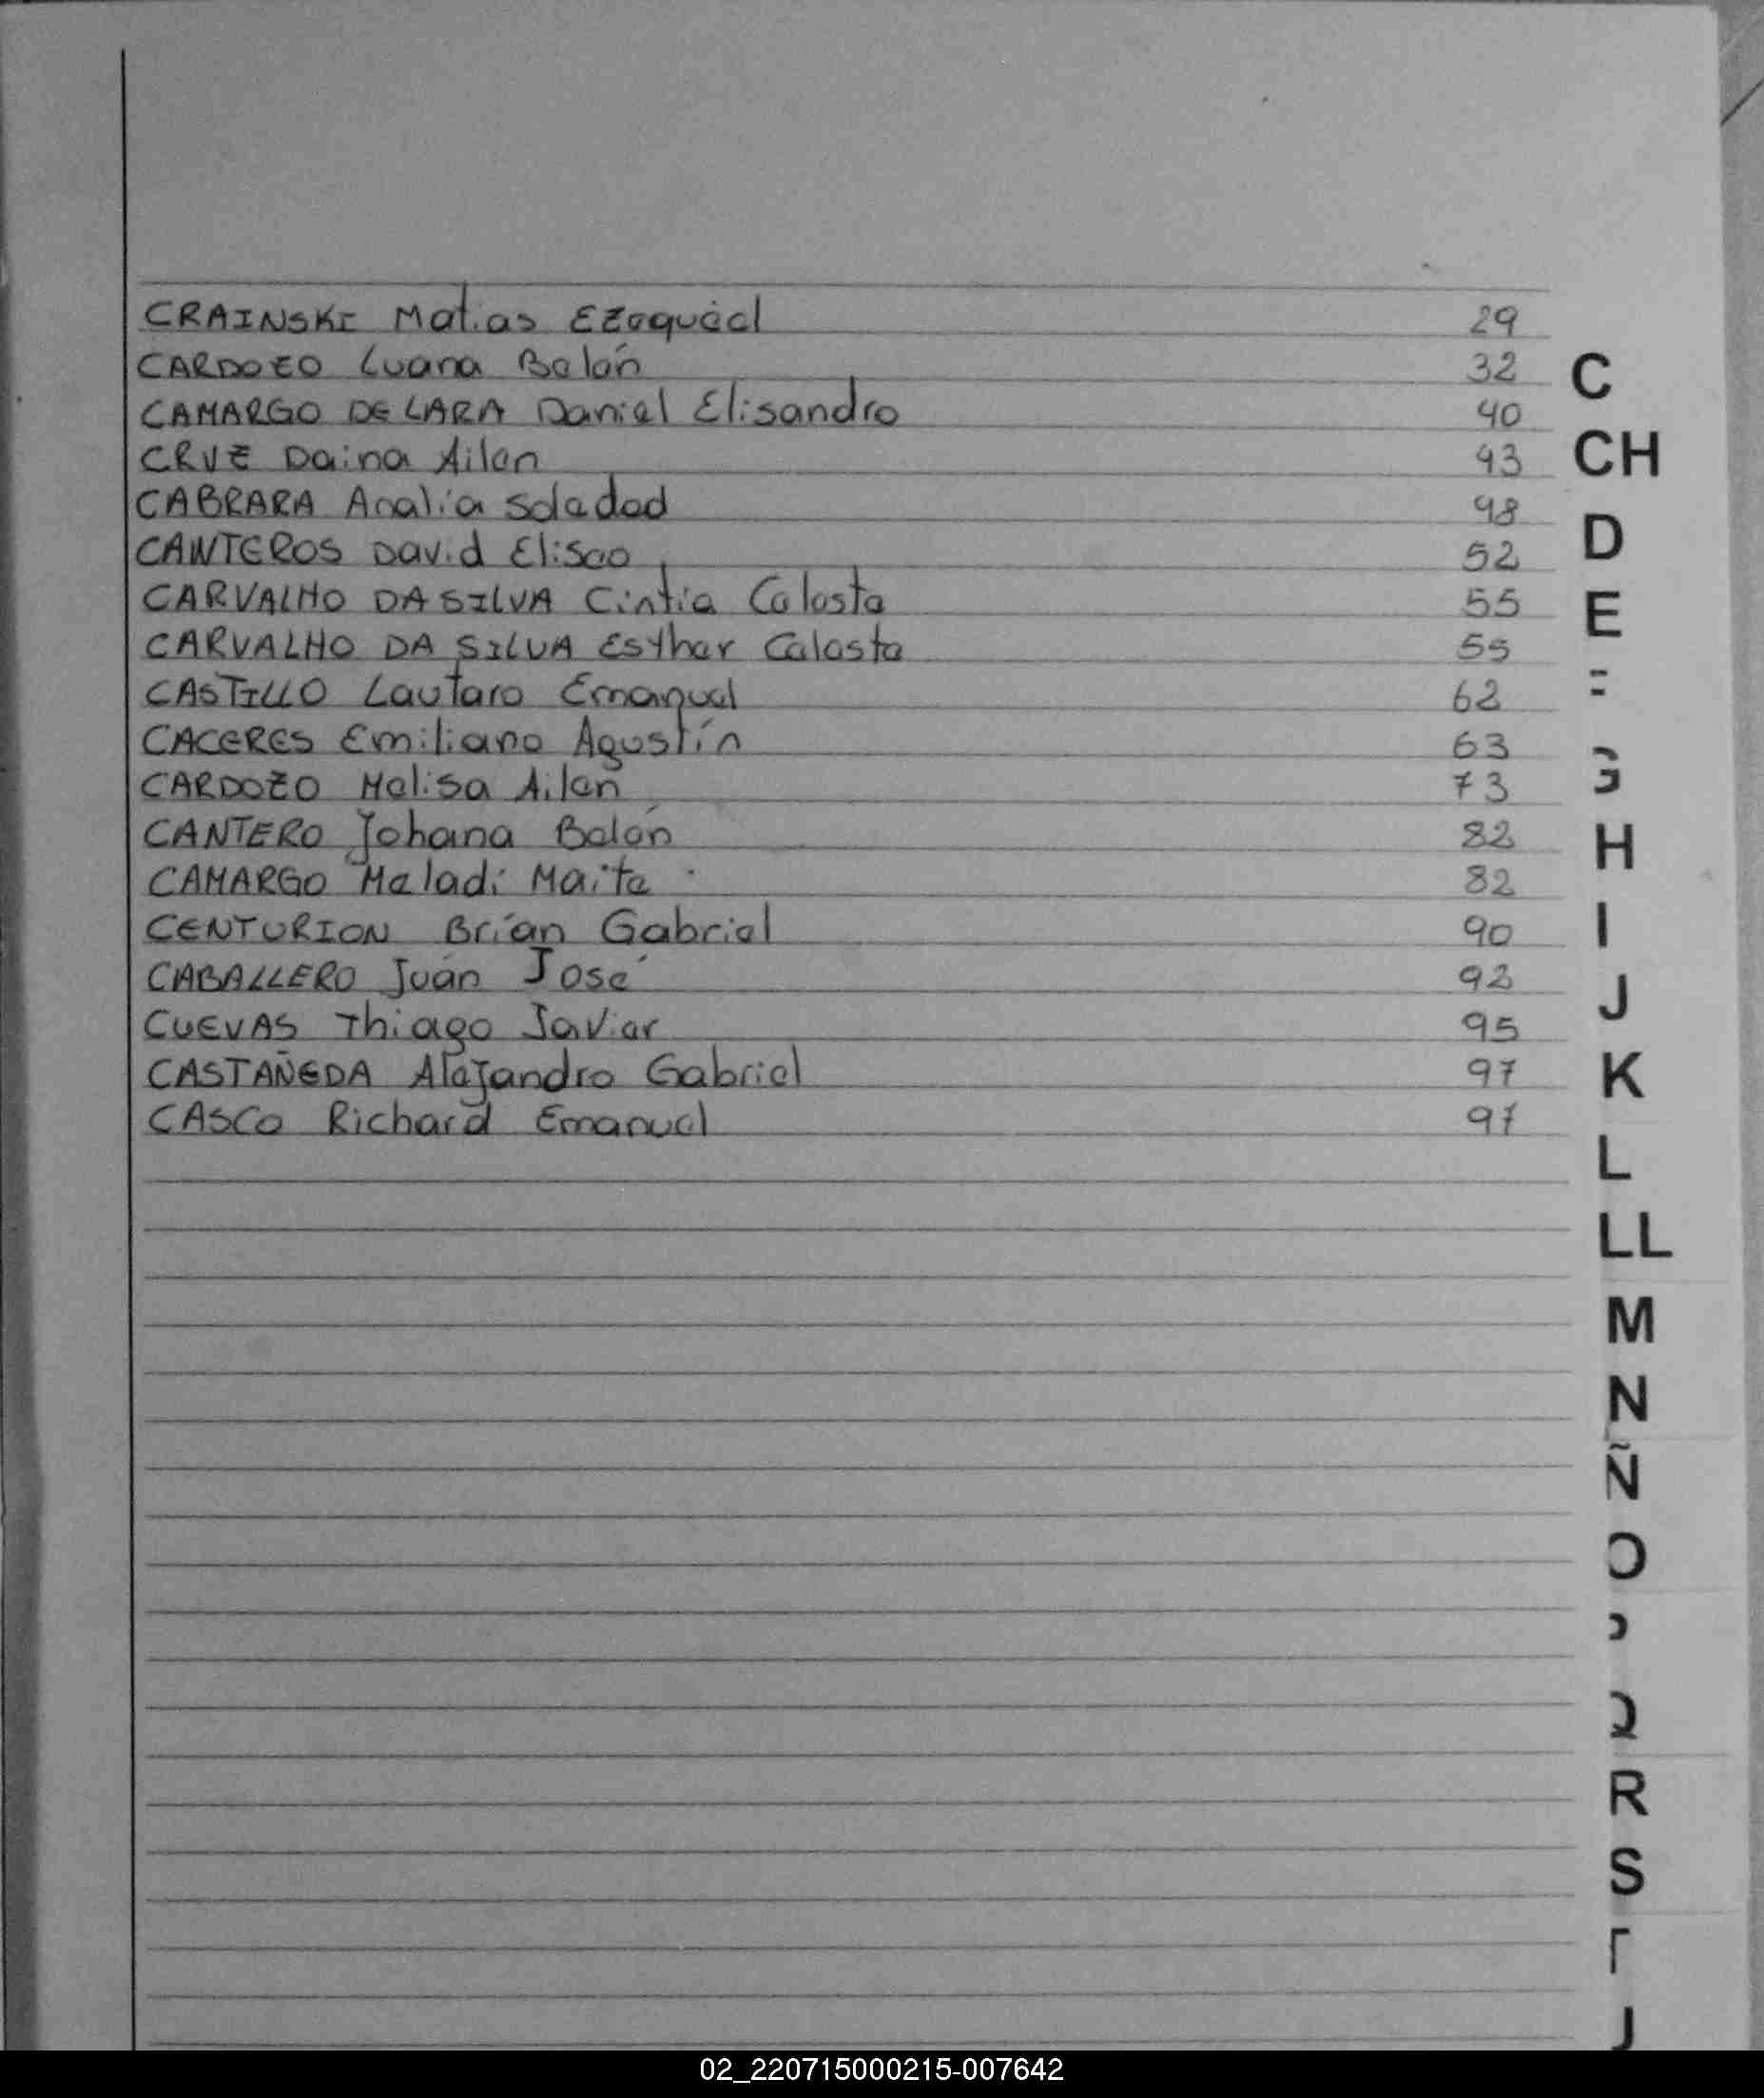 CRAINSKI Matias Ezequiel 29
CARDOZO Luana Belén 32
CAMARGO DE LARA Daniel Elisandro 40
CRUZ Daina Ailen 43
CABRARA Analía Soledad 48
CANTEROS David Eliseo 52
CARVALHO DA SILVA Cintia Celeste 55
CARVALHO DA SILVA Esther Celeste 55
CASTILLO Lautaro Emanuel 62
CACERES Emiliano Agustín 63
CARDOZO Melisa Ailen 73
CANTERO Johana Belén 82
CAMARGO Meladi Maite 82
CENTURION Brían Gabriel 90
CABALLERO Juan José 92
CUEVAS Thiago Javier 95
CASTAÑEDA Alejandro Gabriel 97
CASCO Richard Emanuel 97
C
CH
D
E
H
I
J
K
L
LL
M
N
Ñ
O
R
S
02_220715000215-007642